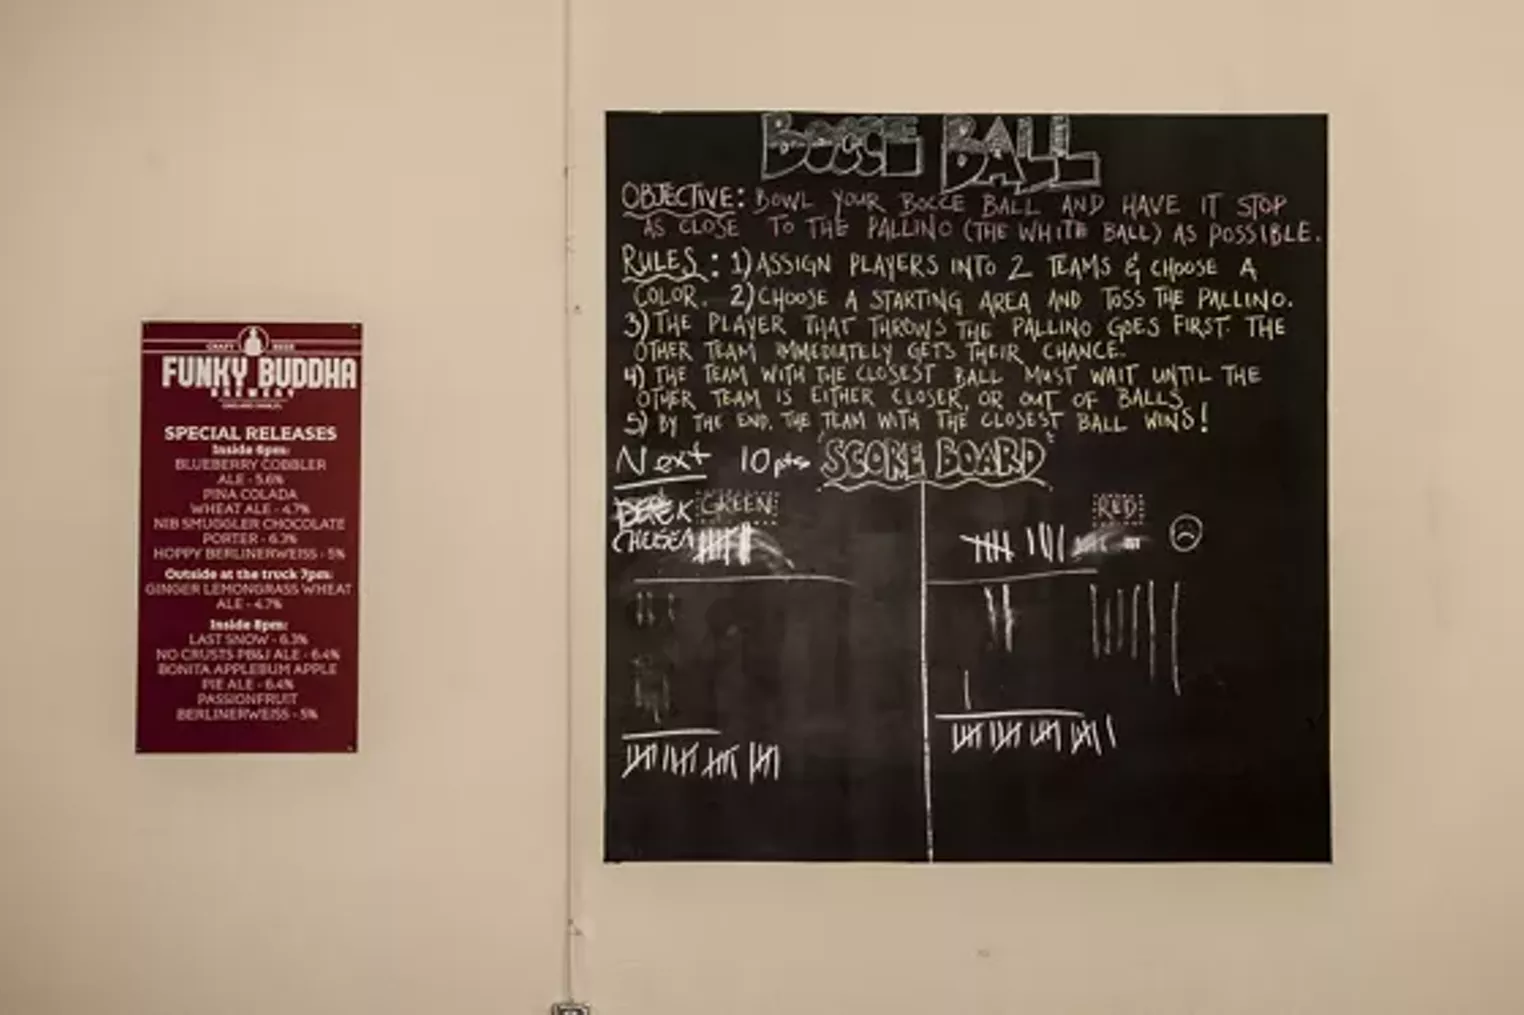 CRAFT BEER
FUNKY BUDDHA
BREWERY
SPECIAL RELEASES
Inside 6pm:
BLUEBERRY COBBLER
ALE - 5.6%
PINA COLADA
WHEAT ALE - 4.7%
NIB SMUGGLER CHOCOLATE
PORTER - 6.3%
HOPPY BERLINERWEISS - 5%
Outside at the truck 7pm:
GINGER LEMONGRASS WHEAT
ALE - 4.7%
Inside 8pm:
LAST SNOW - 6.3%
NO CRUSTS PB&J ALE - 6.4%
BONITA APPLEBUM APPLE
PIE ALE - 6.4%
PASSIONFRUIT
BERLINERWEISS - 5%
BOCCE BALL
OBJECTIVE: BOWL YOUR BOCCE BALL AND HAVE IT STOP
AS CLOSE TO THE PALLINO (THE WHITE BALL) AS POSSIBLE.
RULES: 1) ASSIGN PLAYERS INTO 2 TEAMS & CHOOSE A
COLOR. 2) CHOOSE A STARTING AREA AND TOSS THE PALLINO.
3) THE PLAYER THAT THROWS THE PALLINO GOES FIRST. THE
OTHER TEAM IMMEDIATELY GETS THEIR CHANCE.
4) THE TEAM WITH THE CLOSEST BALL MUST WAIT UNTIL THE
OTHER TEAM IS EITHER CLOSER, OR OUT OF BALLS
5) BY THE END, THE TEAM WITH THE CLOSEST BALL WINS!
Next 10pts "SCORE BOARD"
DEREK GREEN RED
CHELSEA